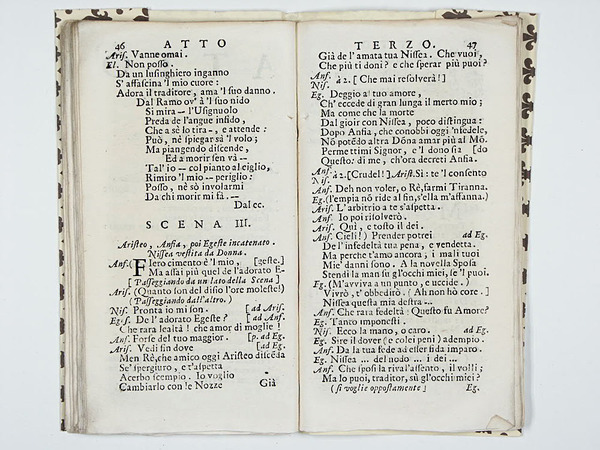 46 ATTO
Aris. Vanne omai.
El. Non posso.
Da un lusinghiero inganno
S' affascina 'l mio cuore:
Adora il traditore, ama 'l suo danno.
Dal Ramo ov' à 'l suo nido
Si mira -- l'Usignuolo
Preda de l'angue infido,
Che a sè lo tira -, e attende:
Può, nè spiegar sà 'l volo;
Ma piangendo discende,
Ed a morir sen và --
Tal' io -- col pianto al ciglio,
Rimiro 'l mio -- periglio:
Posso, nè sò involarmi
Da chi morir mi fà. --
Dal ec.
SCENA III.
Aristeo, Ansia, poi Egeste incatenato.
Nissea vestita da Donna.
Ans. (Fiero cimento è 'l mio, [geste.]
Ma assai più quel de l'adorato E-
[Passeggiando da un lato della Scena]
Aris. (Quanto son del disio l'ore moleste!)
(Passeggiando dall'altro.)
Nis. Pronta io mi son. [ad Aris.
Eg-s. De l' adorato Egeste? [ad Ans.
Che rara lealtà! che amor di moglie!
Ans. Forse del tuo maggior. [p. ad Eg.
Aris. Vedi sin dove [ad Eg.
Men Rè, che amico oggi Aristeo discēda
Se' spergiuro, e t'aspetta
Acerbo scempio. Io voglio
Cambiarlo con le Nozze Già
TERZO. 47
Già de l' amata tua Nissea. Che vuoi,
Che più ti doni? e che sperar più puoi?
Ans.
Nis. à 2. [Che mai resolverà!]
Eg. Deggio al tuo amore,
Ch' eccede di gran lunga il merto mio;
Ma come che la morte
Dal gioir con Nissea, poco distingua:
Dopo Ansia, che conobbi oggi 'nfedele,
Nō potēdo altra Dōna amar più al Mō.
Permettimi Signor, e 'l dono sia [do
Questo: di me, ch'ora decreti Ansia.
Ans.
Nis. à 2. [Crudel!] Arist. Sì: te 'l consento
Ans. Deh non voler, o Rè, farmi Tiranna.
Eg. (l'empia nō ride al fin, s'ella m'affanna.)
Aris. L' arbitrio a te s'aspetta.
Ans. Io poi risolverò.
Aris. Qui, e tosto il dei.
Ans. Cieli!) Prender potrei ad Eg.
De l' infedeltà tua pena, e vendetta.
Ma perche t'amo ancora, i mali tuoi
Mie' danni sono. A la novella Sposa
Stendi la man su gl'occhi miei, se 'l puoi.
Eg. (M'avviva a un punto, e uccide.)
Vivrò, t'obbedirò. (Ah non hò core.]
Nissea questa mia destra --
Ans. Che rara fedeltà: Questo fu Amore?
Eg. Tanto imponesti.
Nis. Ecco la mano, o caro. ad Eg.
Eg. Sire il dover (e colei peni) adempio.
Ans. Da la tua fede ad esser fida imparo.
Eg. Nissea ... del nodo ... i dei ...
Ans. Che sposi la rival l'assento, il volli;
Ma lo puoi, traditor, sù gl'occhi miei?
(si voglie oppostamente] Eg.